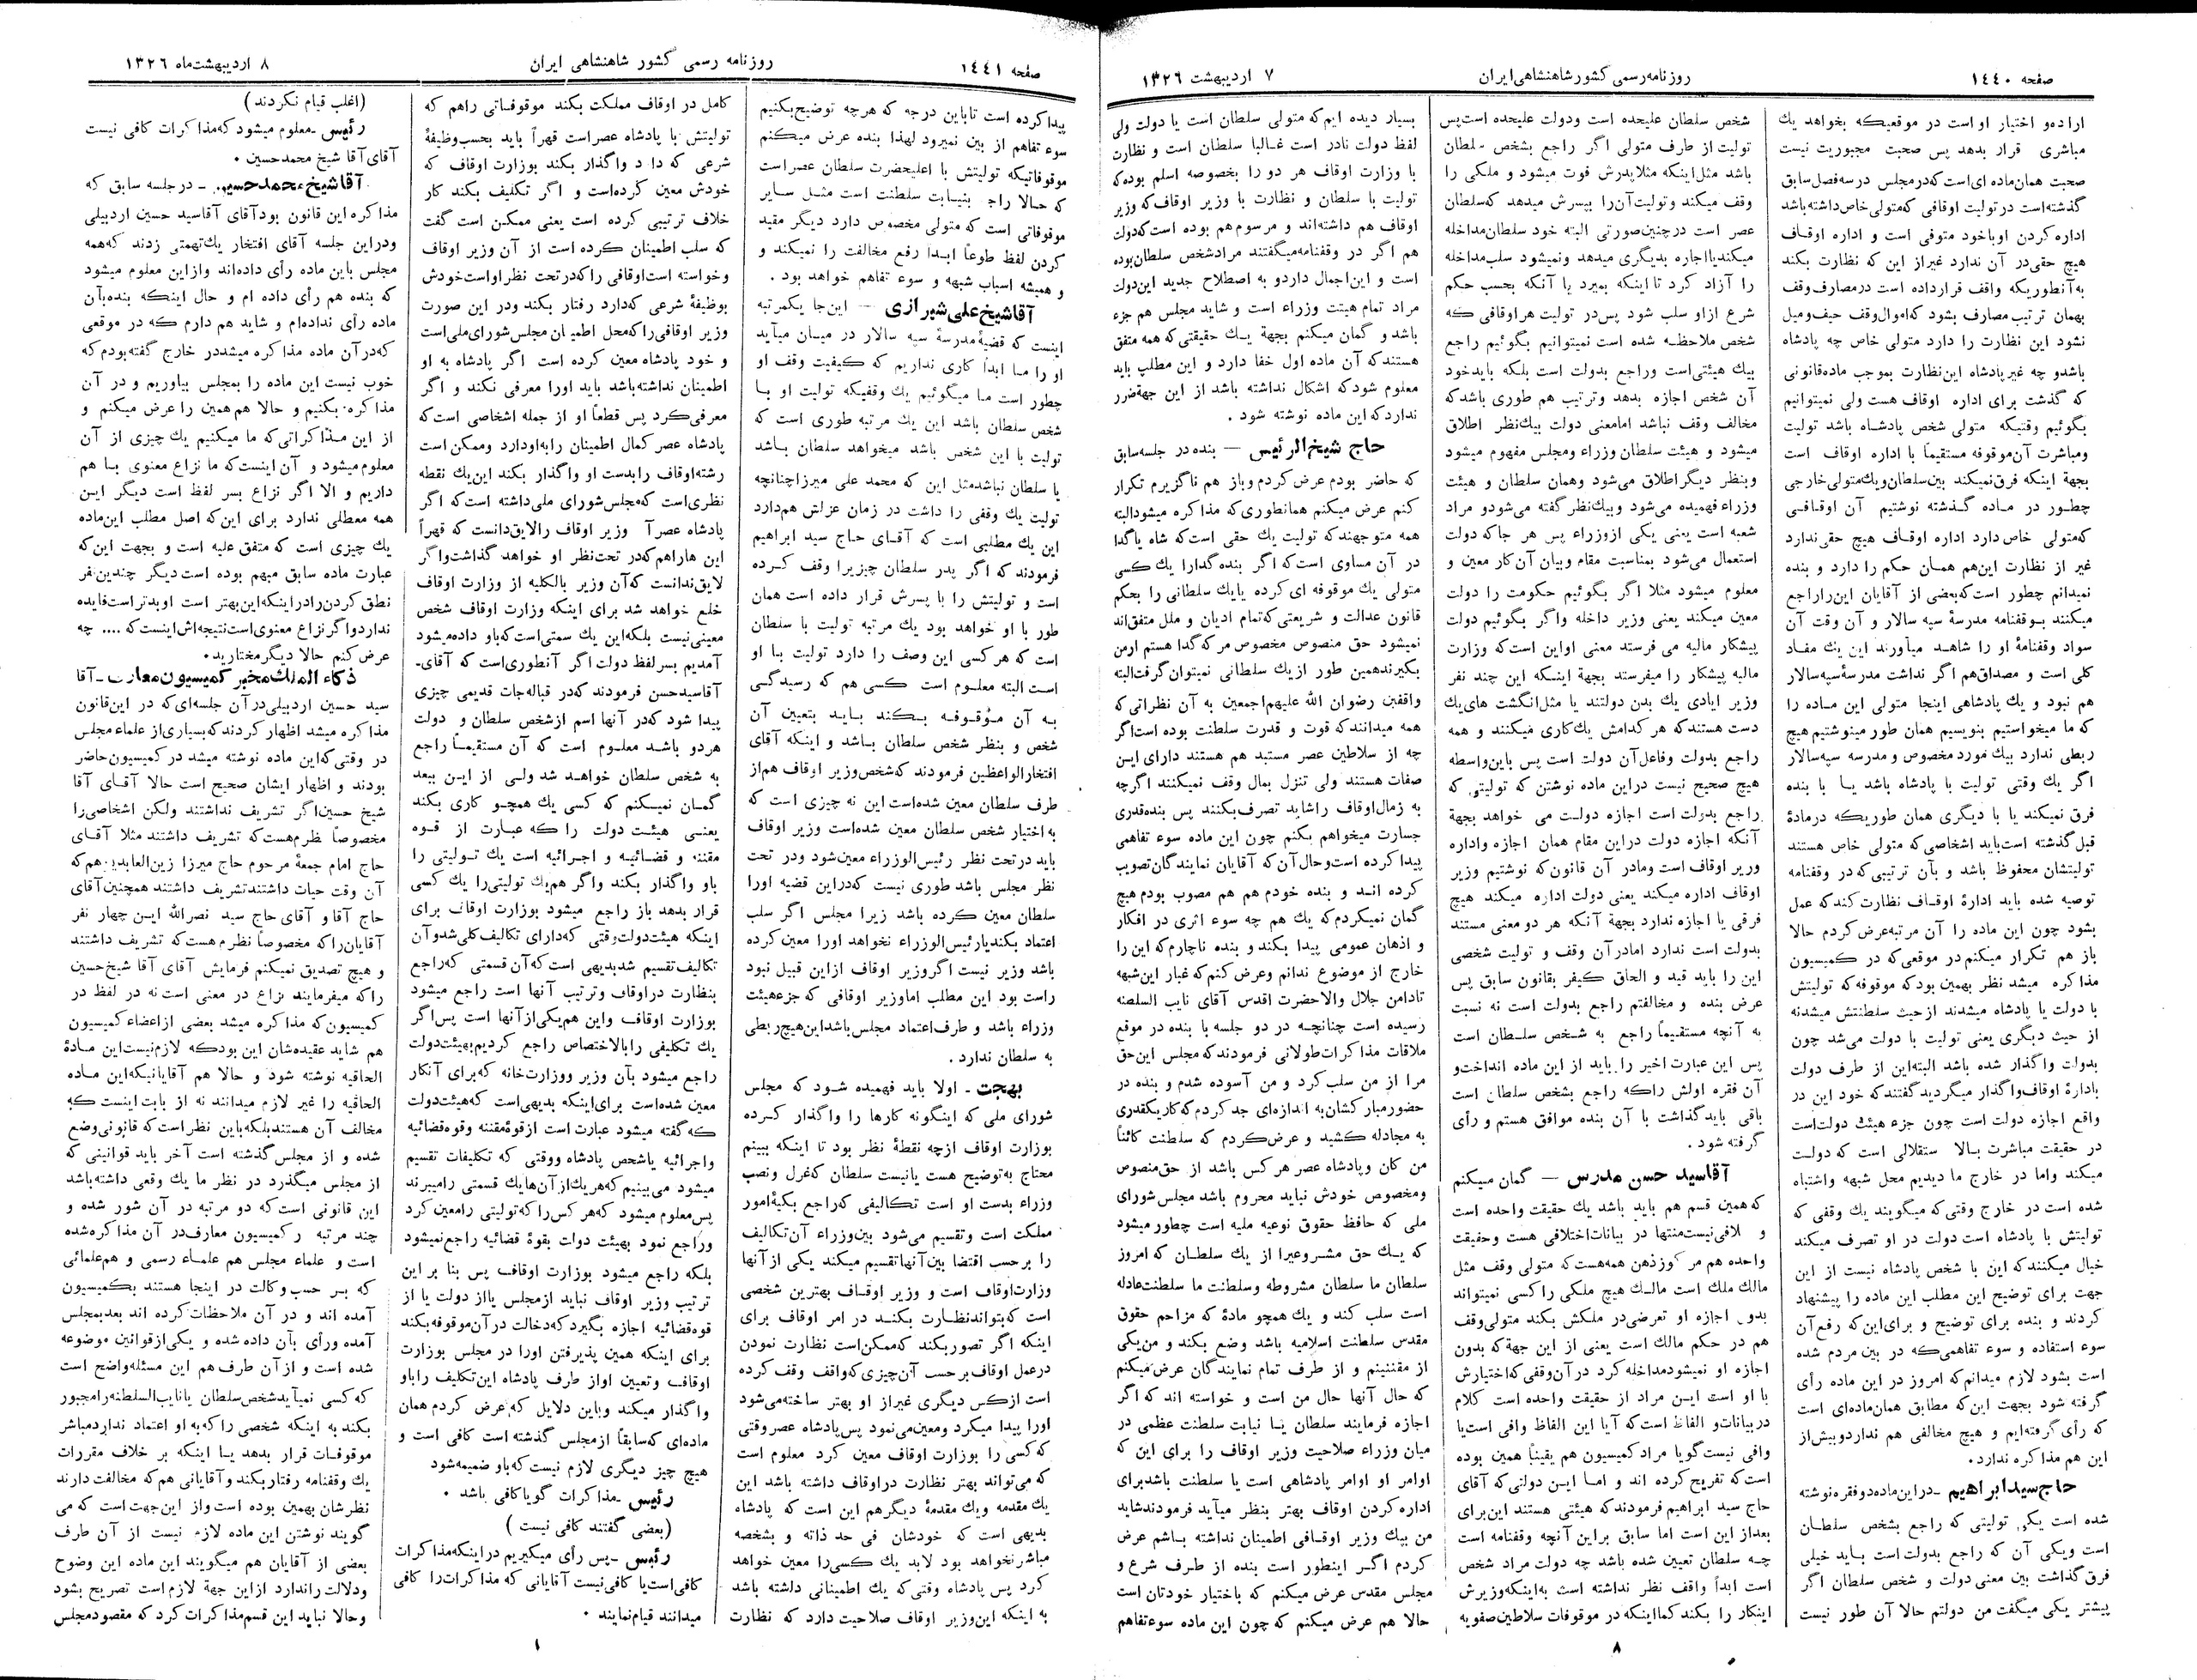 صفحه ۱٤٤۰
روزنامه رسمی کشور شاهنشاهی ایران
۷ اردیبهشت ۱۳۲٦
اراده و اختیار او است در موقعیکه بخواهد یك
مباشری قرار بدهد پس صحبت مجبوریت نیست
صحبت همان ماده ای است که در مجلس در سه فصل سابق
گذشته است در تولیت اوقافی که متولی خاص داشته باشد
اداره کردن او باخود متوفی است و اداره اوقاف
هیچ حقی در آن ندارد غیر از این که نظارت بکند
به آنطوریکه واقف قرار داده است در مصارف وقف
بهمان ترتیب مصارف بشود که اموال وقف حیف و میل
نشود این نظارت را دارد متولی خاص چه پادشاه
باشد و چه غیر پادشاه این نظارت بموجب ماده قانونی
که گذشت برای اداره اوقاف هست ولی نمیتوانیم
بگوئیم وقتیکه متولی شخص پادشاه باشد تولیت
ومباشرت آن موقوفه مستقیماً با اداره اوقاف است
بجهة اینکه فرق نمیکند بین سلطان و یك متولی خارجی
چطور در ماده گذشته نوشتیم آن اوقافی
که متولی خاص دارد اداره اوقاف هیچ حقی ندارد
غیر از نظارت این هم همان حکم را دارد و بنده
نمیدانم چطور است که بعضی از آقایان این را راجع
میکنند بوقفنامه مدرسهٔ سپه سالار و آن وقت آن
سواد وقفنامهٔ او را شاهد میآورند این یك مفاد
کلی است و مصداق هم اگر نداشت مدرسهٔ سپه سالار
هم نبود و یك پادشاهی اینجا متولی این ماده را
که ما میخواستیم بنویسیم همان طور مینوشتیم هیچ
ربطی ندارد بیك مورد مخصوص و مدرسه سپه سالار
اگر یك وقتی تولیت با پادشاه باشد یا با بنده
فرق نمیکند یا با دیگری همان طوریکه در مادهٔ
قبل گذشته است باید اشخاصی که متولی خاص هستند
تولیتشان محفوظ باشد و بآن ترتیبی که در وقفنامه
توصیه شده باید ادارهٔ اوقاف نظارت کند که عمل
بشود چون این ماده را آن مرتبه عرض کردم حالا
باز هم تکرار میکنم در موقعی که در کمیسیون
مذاکره میشد نظر بهمین بود که موقوفه که تولیتش
با دولت یا پادشاه میشدند از حیث سلطنتش میشدنه
از حیث دیگری یعنی تولیت با دولت می شد چون
بدولت واگذار شده باشد البته این از طرف دولت
بادارهٔ اوقاف واگذار میگردید گفتند که خود این در
واقع اجازه دولت است چون جزء هیئت دولت است
در حقیقت مباشرت بالا ستقلالی است که دولت
میکند واما در خارج ما دیدیم محل شبهه واشتباه
شده است در خارج وقتی که میگویند یك وقفی که
تولیتش با پادشاه است دولت در او تصرف میکند
خیال میکنند که این با شخص پادشاه نیست از این
جهت برای توضیح این مطلب این ماده را پیشنهاد
کردند و بنده برای توضیح و برای این که رفع آن
سوء استفاده و سوء تفاهمی که در بین مردم شده
است بشود لازم میدانم که امروز در این ماده رأی
گرفته شود بجهت این که مطابق همان ماده ای است
که رأی گرفته ایم و هیچ مخالفی هم ندارد و بیش از
این هم مذاکره ندارد.
حاج سید ابراهیم - در این ماده دو فقره نوشته
شده است یکی تولیتی که راجع بشخص سلطان
است ویکی آن که راجع بدولت است باید خیلی
فرق گذاشت بین معنی دولت و شخص سلطان اگر
پیشتر یکی میگفت من دولتم حالا آن طور نیست
شخص سلطان علیحده است و دولت علیحده است پس
تولیت از طرف متولی اگر راجع بشخص سلطان
باشد مثل اینکه مثلا پدرش فوت میشود و ملکی را
وقف میکند و تولیت آن را بپسرش میدهد که سلطان
عصر است در چنین صورتی البته خود سلطان مداخله
میکند یا اجاره بدیگری میدهد ونمیشود سلب مداخله
را آزاد کرد تا اینکه بمیرد یا آنکه بحسب حکم
شرع ازاو سلب شود پس در تولیت هر اوقافی که
شخص ملاحظه شده است نمیتوانیم بگوئیم راجع
بیك هیئتی است وراجع بدولت است بلکه باید خود
آن شخص اجازه بدهد وترتیب هم طوری باشد که
مخالف وقف نباشد اما معنی دولت بیك نظر اطلاق
میشود و هیئت سلطان وزراء ومجلس مفهوم میشود
وبنظر دیگر اطلاق می شود وهمان سلطان و هیئت
وزراء فهمیده می شود و بیك نظر گفته می شود و مراد
شعبه است یعنی یکی از وزراء پس هر جا که دولت
استعمال می شود بمناسبت مقام و بیان آن کار معین و
معلوم میشود مثلا اگر بگوئیم حکومت را دولت
معین میکند یعنی وزیر داخله واگر بگوئیم دولت
پیشکار مالیه می فرستد معنی او این است که وزارت
مالیه پیشکار را میفرستد بجهة اینکه این چند نفر
وزیر ایادی یك بدن دولتند یا مثل انگشت های یك
دست هستند که هر کدامش یك کاری میکنند و همه
راجع بدولت وفاعل آن دولت است پس باین واسطه
هیچ صحیح نیست در این ماده نوشتن که تولیتی که
راجع بدولت است اجازه دولت می خواهد بجهة
آنکه اجازه دولت در این مقام همان اجازه واداره
وزیر اوقاف است ومادر آن قانون که نوشتیم وزیر
اوقاف اداره میکند یعنی دولت اداره میکند هیچ
فرقی با اجازه ندارد بجهة آنکه هر دو معنی مستند
بدولت است ندارد اما در آن وقف و تولیت شخصی
این را باید قید و الحاق کیفر بقانون سابق پس
عرض بنده و مخالفتم راجع بدولت است نه نسبت
به آنچه مستقیماً راجع به شخص سلطان است
پس این عبارت اخیر را باید از این ماده انداخت و
آن فقره اولش راکه راجع بشخص سلطان است
باقی باید گذاشت با آن بنده موافق هستم و رأی
گرفته شود .
آقا سید حسن مدرس — گمان میکنم
که همین قسم هم باید باشد یك حقیقت واحده است
و لافی نیست منتها در بیانات اختلافی هست وحقیقت
واحده هم مرکوز ذهن همه هست که متولی وقف مثل
مالك ملك است مالك هیچ ملکی را کسی نمیتواند
بدون اجازه او تعرضی در ملکش بکند متولی وقف
هم در حکم مالك است یعنی از این جهة که بدون
اجازه او نمیشود مداخله کرد در آن وقفی که اختیارش
با او است این مراد از حقیقت واحده است کلام
در بیانات و الفاظ است که آیا این الفاظ وافی است یا
وافی نیست گویا مراد کمیسیون هم یقیناً همین بوده
است که تفریح کرده اند و اما این دولتی که آقای
حاج سید ابراهیم فرمودند که هیئتی هستند این برای
بعد از این است اما سابق بر این آنچه وقفنامه است
چه سلطان تعیین شده باشد چه دولت مراد شخص
است ابداً واقف نظر نداشته است به اینکه وزیرش
اینکار را بکند کما اینکه در موقوفات سلاطین صفویه
بسیار دیده ایم که متولی سلطان است یا دولت ولی
لفظ دولت نادر است غالبا سلطان است و نظارت
با وزارت اوقاف هر دو را بخصوصه اسلم بوده که
تولیت با سلطان و نظارت با وزیر اوقاف که وزیر
اوقاف هم داشته اند و مرسوم هم بوده است که دولت
هم اگر در وقفنامه میگفتند مراد شخص سلطان بوده
است و این اجمال دارد و به اصطلاح جدید این دولت
مراد تمام هیئت وزراء است و شاید مجلس هم جزء
باشد و گمان میکنم بجهة یك حقیقتی که همه متفق
هستند که آن ماده اول خفا دارد و این مطلب باید
معلوم شود که اشکال نداشته باشد از این جهة ضرر
ندارد که این ماده نوشته شود .
حاج شیخ الرئیس — بنده در جلسه سابق
که حاضر بودم عرض کردم و باز هم ناگزیرم تکرار
کنم عرض میکنم همانطوری که مذاکره میشود البته
همه متوجهند که تولیت یك حقی است که شاه یا گدا
در آن مساوی است که اگر بنده گدارا یك کسی
متولی یك موقوفه ای کرده یا یك سلطانی را بحکم
قانون عدالت و شریعتی که تمام ادیان و ملل متفق اند
نمیشود حق منصوص مخصوص مر که گدا هستم ازمن
بگیرند همین طور از یك سلطانی نمیتوان گرفت البته
واقفین رضوان الله علیهم اجمعین به آن نظراتی که
همه میدانند که قوت و قدرت سلطنت بوده است اگر
چه از سلاطین عصر مستبد هم هستند دارای این
صفات هستند ولی تنزل بمال وقف نمیکنند اگرچه
به زمال اوقاف را شاید تصرف بکنند پس بنده قدری
جسارت میخواهم بکنم چون این ماده سوء تفاهمی
پیدا کرده است و حال آن که آقایان نمایندگان تصویب
کرده اند و بنده خودم هم هم مصوب بودم هیچ
گمان نمیکردم که یك هم چه سوء اثری در افکار
و اذهان عمومی پیدا بکند و بنده ناچارم که این را
خارج از موضوع ندانم و عرض کنم که غبار این شبهه
تادامن جلال والاحضرت اقدس آقای نایب السلطنه
رسیده است چنانچه در دو جلسه با بنده در موقع
ملاقات مذاکرات طولانی فرمودند که مجلس این حق
مرا از من سلب کرد و من آسوده شدم و بنده در
حضور مبارکشان به اندازه ای جد کردم که کار یکقدری
به مجادله کشید و عرض کردم که سلطنت کائناً
من کان و پادشاه عصر هر کس باشد از حق منصوص
ومخصوص خودش نباید محروم باشد مجلس شورای
ملی که حافظ حقوق نوعیه ملیه است چطور میشود
که یك حق مشروعیرا از یك سلطان که امروز
سلطان ما سلطان مشروطه وسلطنت ما سلطنت عادله
است سلب کند و یك همچو مادهٔ که مزاحم حقوق
مقدس سلطنت اسلامیه باشد وضع بکند و من یکی
از مقننینم و از طرف تمام نمایندگان عرض میکنم
که حال آنها حال من است و خواسته اند که اگر
اجازه فرمایند سلطان یا نیابت سلطنت عظمی در
میان وزراء صلاحیت وزیر اوقاف را برای این که
اوامر او اوامر پادشاهی است یا سلطنت باشد برای
اداره کردن اوقاف بهتر بنظر میآید فرمودند شاید
من بیك وزیر اوقافی اطمینان نداشته باشم عرض
کردم اگر اینطور است بنده از طرف شرع و
مجلس مقدس عرض میکنم که باختیار خودتان است
حالا هم عرض میکنم که چون این ماده سوء تفاهم
۸
صفحه ۱٤٤۱
روزنامه رسمی کشور شاهنشاهی ایران
۸ اردیبهشت ماه ۱۳۲٦
پیدا کرده است تا باین درجه که هرچه توضیح بکنیم
سوء تفاهم از بین نمیرود لهذا بنده عرض میکنم
موقوفاتیکه تولیتش با اعلیحضرت سلطان عصر است
که حالا راجع بنیابت سلطنت است مثل سایر
موقوفاتی است که متولی مخصوص دارد دیگر مقید
کردن لفظ طوعاً ابدا رفع مخالفت را نمیکند و
و همیشه اسباب شبهه و سوء تفاهم خواهد بود .
آقا شیخ علی شیرازی — این جا یکمرتبه
اینست که قضیهٔ مدرسهٔ سپه سالار در میان میآید
او را ما ابداً کاری نداریم که کیفیت وقف او
چطور است ما میگوئیم یك وقفیکه تولیت او با
شخص سلطان باشد این یك مرتبه طوری است که
تولیت با این شخص باشد میخواهد سلطان باشد
یا سلطان نباشد مثل این که محمد علی میرزا چنانچه
تولیت یك وقفی را داشت در زمان عزلش هم دارد
این یك مطلبی است که آقای حاج سید ابراهیم
فرمودند که اگر پدر سلطان چیزیرا وقف کرده
است و تولیتش را با پسرش قرار داده است همان
طور با او خواهد بود یك مرتبه تولیت با سلطان
است که هر کسی این وصف را دارد تولیت با او
است البته معلوم است کسی هم که رسیدگی
به آن موقوفه بکند باید بتعیین آن
شخص و بنظر شخص سلطان باشد و اینکه آقای
افتخار الواعظین فرمودند که شخص وزیر اوقاف هم از
طرف سلطان معین شده است این نه چیزی است که
به اختیار شخص سلطان معین شده است وزیر اوقاف
باید در تحت نظر رئیس الوزراء معین شود ودر تحت
نظر مجلس باشد طوری نیست که در این قضیه اورا
سلطان معین کرده باشد زیرا مجلس اگر سلب
اعتماد بکند یا رئیس الوزراء نخواهد اورا معین کرده
باشد وزیر نیست اگر وزیر اوقاف از این قبیل نبود
راست بود این مطلب اما وزیر اوقافی که جزء هیئت
وزراء باشد و طرف اعتماد مجلس باشد این هیچ ربطی
به سلطان ندارد .
بهجت - اولا باید فهمیده شود که مجلس
شورای ملی که اینگونه کارها را واگذار کرده
بوزارت اوقاف ازچه نقطهٔ نظر بود تا اینکه ببینم
محتاج به توضیح هست یا نیست سلطان که عزل ونصب
وزراء بدست او است تکالیفی که راجع بکیهٔ امور
مملکت است وتقسیم می شود بین وزراء آن تکالیف
را بر حسب اقتضا بین آنها تقسیم میکند یکی از آنها
وزارت اوقاف است و وزیر اوقاف بهترین شخصی
است که بتواند نظارت بکند در امر اوقاف برای
اینکه اگر تصور بکند که ممکن است نظارت نمودن
در عمل اوقاف بر حسب آن چیزی که واقف وقف کرده
است از کس دیگری غیر از او بهتر ساخته می شود
اورا پیدا میکرد و معین می نمود پس پادشاه عصر وقتی
که کسی را بوزارت اوقاف معین کرد معلوم است
که می تواند بهتر نظارت در اوقاف داشته باشد این
یك مقدمه ویك مقدمهٔ دیگر هم این است که پادشاه
بدیهی است که خودشان فی حد ذاته و بشخصه
مباشر نخواهد بود لابد یك کسی را معین خواهد
کرد پس پادشاه وقتی که یك اطمینانی داشته باشد
به اینکه این وزیر اوقاف صلاحیت دارد که نظارت
کامل در اوقاف مملکت بکند موقوفاتی راهم که
تولیتش با پادشاه عصر است قهراً باید بحسب وظیفهٔ
شرعی که دارد واگذار بکند بوزارت اوقاف که
خودش معین کرده است و اگر تکلیف بکند کار
خلاف ترتیبی کرده است یعنی ممکن است گفت
که سلب اطمینان کرده است از آن وزیر اوقاف
وخواسته است اوقافی را که در تحت نظر او است خودش
بوظیفهٔ شرعی که دارد رفتار بکند ودر این صورت
وزیر اوقافی را که محل اطمینان مجلس شورای ملی است
و خود پادشاه معین کرده است اگر پادشاه به او
اطمینان نداشته باشد باید اورا معرفی نکند و اگر
معرفی کرد پس قطعاً او از جمله اشخاصی است که
پادشاه عصر کمال اطمینان را به او دارد وممکن است
رشته اوقاف را بدست او واگذار بکند این یك نقطه
نظری است که مجلس شورای ملی داشته است که اگر
پادشاه عصر آن وزیر اوقاف را لایق دانست که قهراً
این هارا هم که در تحت نظر او خواهد گذاشت و اگر
لایق ندانست که آن وزیر بالکلیه از وزارت اوقاف
خلع خواهد شد برای اینکه وزارت اوقاف شخص
معینی نیست بلکه این یك سمتی است که باو داده میشود
آمدیم بسر لفظ دولت اگر آنطوری است که آقای
آقا سید حسن فرمودند که در قباله جات قدیمی چیزی
پیدا شود که در آنها اسم از شخص سلطان و دولت
هردو باشد معلوم است که آن مستقیماً راجع
به شخص سلطان خواهد شد ولی از این ببعد
گمان نمیکنم که کسی یك همچو کاری بکند
یعنی هیئت دولت را که عبارت از قوه
مقننه و قضائیه و اجرائیه است یك تولیتی را
باو واگذار بکند واگر هم یك تولیتی را یك کسی
قرار بدهد باز راجع میشود بوزارت اوقاف برای
اینکه هیئت دولت وقتی که دارای تکالیف کلی شد و آن
تکالیف تقسیم شد بدیهی است که آن قسمتی که راجع
بنظارت در اوقاف وترتیب آنها است راجع میشود
بوزارت اوقاف واین هم یکی از آنها است پس اگر
یك تکلیفی را بالاختصاص راجع کردیم بهیئت دولت
راجع میشود بآن وزیر ووزارت خانه که برای آنکار
معین شده است برای اینکه بدیهی است که هیئت دولت
که گفته میشود عبارت است از قوهٔ مقننه وقوه قضائیه
واجرائیه یا شخص پادشاه ووقتی که تکلیفات تقسیم
میشود می بینیم که هر یك از آن ها یك قسمتی را میبرند
پس معلوم میشود که هر کس را که تولیتی را معین کرد
وراجع نمود بهیئت دولت بقوهٔ قضائیه راجع نمیشود
بلکه راجع میشود بوزارت اوقاف پس بنا بر این
ترتیب وزیر اوقاف نباید از مجلس یا از دولت یا از
قوه قضائیه اجازه بگیرد که دخالت در آن موقوفه بکند
برای اینکه همین پذیرفتن اورا در مجلس بوزارت
اوقاف وتعیین اواز طرف پادشاه این تکلیف را باو
واگذار میکند وباین دلایل که عرض کردم همان
ماده ای که سابقاً از مجلس گذشته است کافی است و
هیچ چیز دیگری لازم نیست که باو ضمیمه شود
رئیس - مذاکرات گویا کافی باشد .
(بعضی گفتند کافی نیست )
رئیس - پس رأی میگیریم در اینکه مذاکرات
کافی است یا کافی نیست آقایانی که مذاکرات را کافی
میدانند قیام نمایند .
(اغلب قیام نکردند )
رئیس - معلوم میشود که مذاکرات کافی نیست
آقای آقا شیخ محمد حسین .
آقا شیخ محمد حسین - در جلسه سابق که
مذاکره این قانون بود آقای آقا سید حسین اردبیلی
ودر این جلسه آقای افتخار یك تهمتی زدند که همه
مجلس باین ماده رأی داده اند و از این معلوم میشود
که بنده هم رأی داده ام و حال اینکه بنده بآن
ماده رأی نداده ام و شاید هم دارم که در موقعی
که در آن ماده مذاکره میشد در خارج گفته بودم که
خوب نیست این ماده را بمجلس بیاوریم و در آن
مذاکره بکنیم و حالا هم همین را عرض میکنم و
از این مذاکراتی که ما میکنیم یك چیزی از آن
معلوم میشود و آن اینست که ما نزاع معنوی با هم
داریم و الا اگر نزاع بسر لفظ است دیگر این
همه معطلی ندارد برای این که اصل مطلب این ماده
یك چیزی است که متفق علیه است و بجهت این که
عبارت ماده سابق مبهم بوده است دیگر چندین نفر
نطق کردن را در اینکه این بهتر است او بدتر است فایده
ندارد و اگر نزاع معنوی است نتیجه اش اینست که .... چه
عرض کنم حالا دیگر مختارید .
ذکاء الملك مخبر کمیسیون معارف - آقا
سید حسین اردبیلی در آن جلسه ای که در این قانون
مذاکره میشد اظهار کردند که بسیاری از علماء مجلس
در وقتی که این ماده نوشته میشد در کمیسیون حاضر
بودند و اظهار ایشان صحیح است حالا آقای آقا
شیخ حسین اگر تشریف نداشتند ولکن اشخاصی را
مخصوصاً نظرم هست که تشریف داشتند مثلا آقای
حاج امام جمعهٔ مرحوم حاج میرزا زین العابدین هم که
آن وقت حیات داشتند تشریف داشتند همچنین آقای
حاج آقا و آقای حاج سید نصرالله این چهار نفر
آقایان را که مخصوصاً نظرم هست که تشریف داشتند
و هیچ تصدیق نمیکنم فرمایش آقای آقا شیخ حسین
را که میفرمایند نزاع در معنی است نه در لفظ در
کمیسیون که مذاکره میشد بعضی از اعضاء کمیسیون
هم شاید عقیده شان این بود که لازم نیست این مادهٔ
الحاقیه نوشته شود و حالا هم آقایانیکه این ماده
الحاقیه را غیر لازم میدانند نه از بابت اینست که
مخالف آن هستند بلکه باین نظر است که قانونی وضع
شده و از مجلس گذشته است آخر باید قوانینی که
از مجلس میگذرد در نظر ما یك وقعی داشته باشد
این قانونی است که دو مرتبه در آن شور شده و
چند مرتبه در کمیسیون معارف در آن مذاکره شده
است و علماء مجلس هم علماء رسمی و هم علمائی
که بر حسب وکالت در اینجا هستند بکمیسیون
آمده اند و در آن ملاحظات کرده اند بعد بمجلس
آمده ورأی بآن داده شده و یکی از قوانین موضوعه
شده است و از آن طرف هم این مسئله واضح است
که کسی نمیآید شخص سلطان یا نایب السلطنه را مجبور
بکند به اینکه شخصی را که به او اعتماد ندارد مباشر
موقوفات قرار بدهد یا اینکه بر خلاف مقررات
یك وقفنامه رفتار بکند و آقایانی هم که مخالفت دارند
نظرشان بهمین بوده است واز این جهت است که می
گویند نوشتن این ماده لازم نیست از آن طرف
بعضی از آقایان هم میگویند این ماده این وضوح
ودلالت را ندارد از این جهة لازم است تصریح بشود
وحالا نباید این قسم مذاکرات کرد که مقصود مجلس
۱